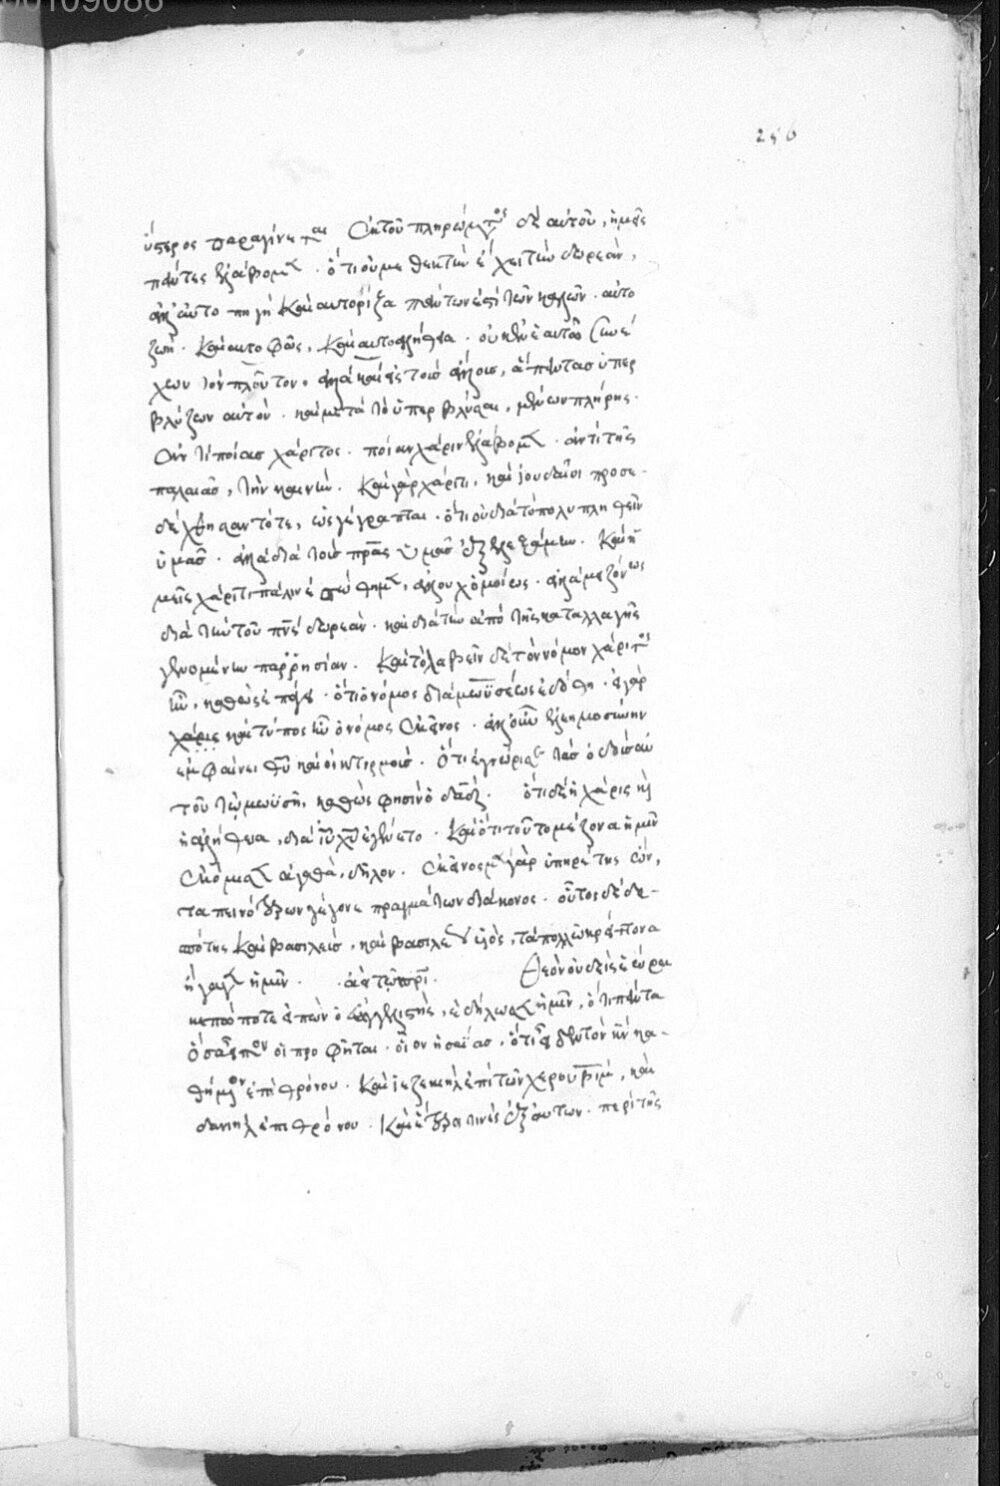 00109086
256
ὕστερος παραγίνεται Ἐκ τοῦ πληρώματος δὲ αὐτοῦ, ἡμεῖς
πάντες ἐλάβομεν. ὅτι οὐ μεθεκτὴν ἔχει τὴν δωρεάν,
ἀλλ' αὐτοπηγὴ καὶ αὐτόριζα πάντων ἐστὶ τῶν καλῶν. αὐτο
ζωή. καὶ αὐτοφῶς, καὶ αὐτοαλήθεια. οὐκ ἐν ἑαυτῶ συνέ
χων τὸν πλοῦτον. ἀλλὰ καὶ εἰς τοὺς ἄλλους, ἅπαντας ὑπερ
βλύζων αὐτόν. καὶ μετὰ τὸ ὑπερβλύσαι, μένων πλήρης.
ἀντὶ ποίας χάριτος. ποίαν χάριν ἐλάβομεν. ἀντὶ τῆς
παλαιᾶς, τὴν καινήν. καὶ γὰρ χάριτι, καὶ ἰουδαῖοι προσε
δέχθησαν τότε, ὡς γέγραπται. ὅτι οὐ διὰ τὸ πολυπληθεῖν
ὑμᾶς. ἀλλὰ διὰ τοὺς πρας ὑμῶν ἐξελεξάμην. καὶ ἡ
μεῖς χάριτι πάλιν ἐσώθημεν, ἀλλ' οὐχ ὁμοίως. ἀλλὰ μειζόνως
διὰ τὴν τοῦ πνς δωρεάν. καὶ διὰ τὴν ἀπὸ τῆς καταλλαγῆς
γενομένην παρρησίαν. καὶ τὸ λαβεῖν δὲ τὸν νόμον χάριτος
ἦν, καθὼς ἐπάγει. ὅτι ὁ νόμος διὰ μωϋσέως ἐδόθη. εἰ γὰρ
χάρις καὶ τύπος ἦν ὁ νόμος ἐκεῖνος. ἀλλ' οὖν ἐλεημοσύνην
ἐμφαίνει θυ καὶ οἰκτιρμούς. Ὅτι ἐγνώρισε τὰς ὁδοὺς αὐ
τοῦ τῶ μωϋσῆ, καθὼς φησὶν ὁ δαδ. ὅτι δὲ ἡ χάρις καὶ
ἡ ἀλήθεια, διὰ ιυ χυ ἐγένετο. καὶ ὅτι τούτου μείζονα ἡμῖν
ἀγαθά, δῆλον. ἐκεῖνος μὲν γὰρ ὑπηρέτης ὤν,
ταπεινοτέρων γέγονε πραγμάτων διάκονος. οὗτος δὲ δε
σπότης καὶ βασιλεύς, καὶ βασιλέως υἱός, τὰ πολλῶ κρείττονα
ἤγαγεν ἡμῖν. Θεὸν οὐδεὶς ἑώρα
κε πώποτε εἰπὼν ὁ εὐαγγελιστής, ἐδήλωσεν ἡμῖν, ὅτι πάντα
ὅσα εἶπον οἱ προφῆται. οἷον ἡσαΐας, ὅτι εἶδε τὸν κν κα
θήμενον ἐπὶ θρόνου. καὶ ἰεζεκιὴλ ἐπὶ τῶν χερουβίμ, καὶ
δανιὴλ ἐπὶ θρόνου. καὶ ἕτεροί τινες ἐξ αὐτῶν. περὶ τῆς